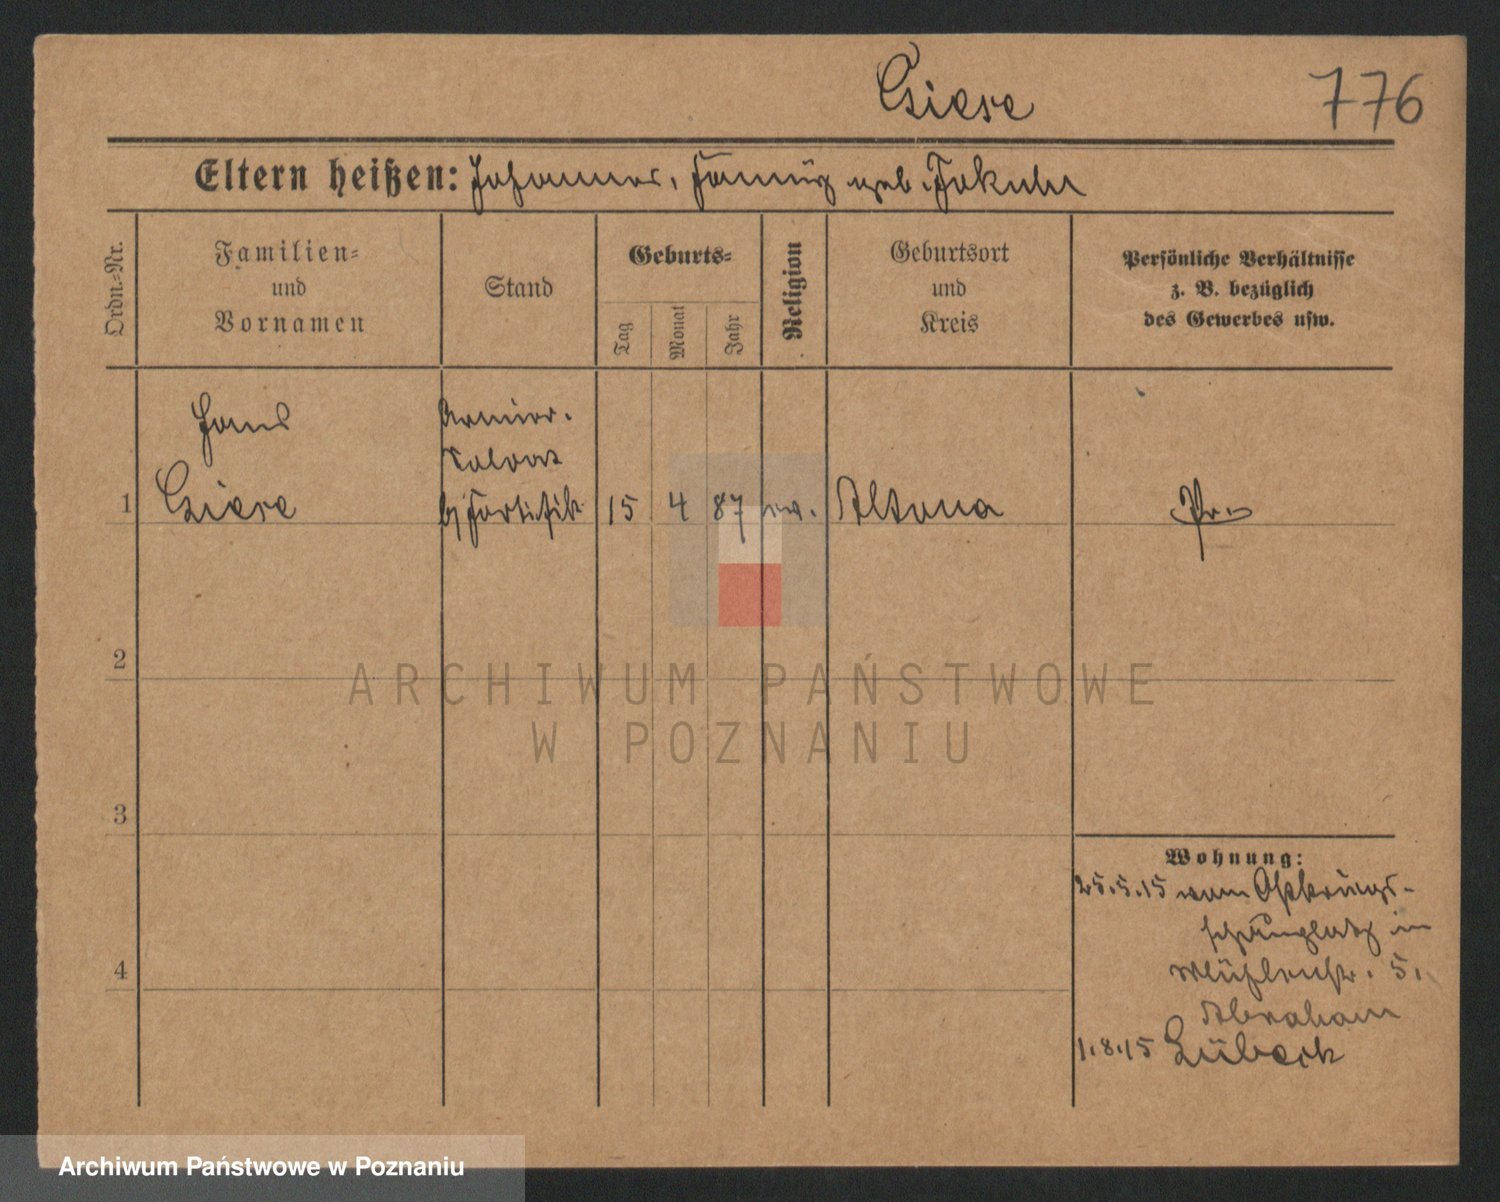 Giese 776
Eltern heißen: Johannes, Fanny geb. Jakuhr
Ordn.=Nr.
Familien=
und
Vornamen
Stand
Geburts=
Tag
Monat
Jahr
Religion
Geburtsort
und
Kreis
Persönliche Verhältnisse
z. B. bezüglich
des Gewerbes usw.
Hans Armier.
Soldat
1 Giese b/ Fortifik 15 4 87 ev. Altona Pr.
2
3
4
Wohnung:
25.5.15 vom
in
Mühlenstr. 5.
Abraham
1.8.15 Lübeck
ARCHIWUM PAŃSTWOWE
W POZNANIU
Archiwum Państwowe w Poznaniu